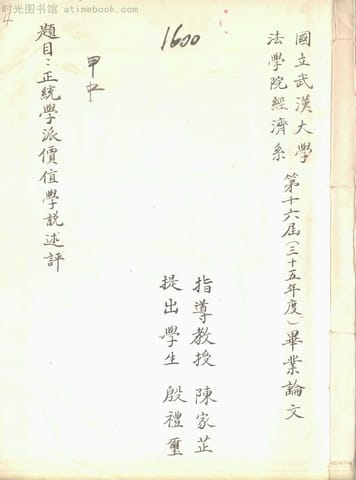 时光图书馆 - atimebook.com
1600
國立武漢大學
法學院經濟系
第十六屆(三十五年度)畢業論文
指導教授 陳家芷
提出學生 殷禮璽
甲中
題目:正統學派價值學說述評
4